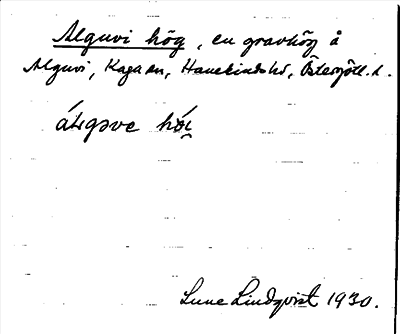 Alguvi hög, en gravhög å
Alguvi, Kaga sn, Hanekinds hd, Östergötl. l.
hǫ́i̯
Sune Lindqvist 1930.